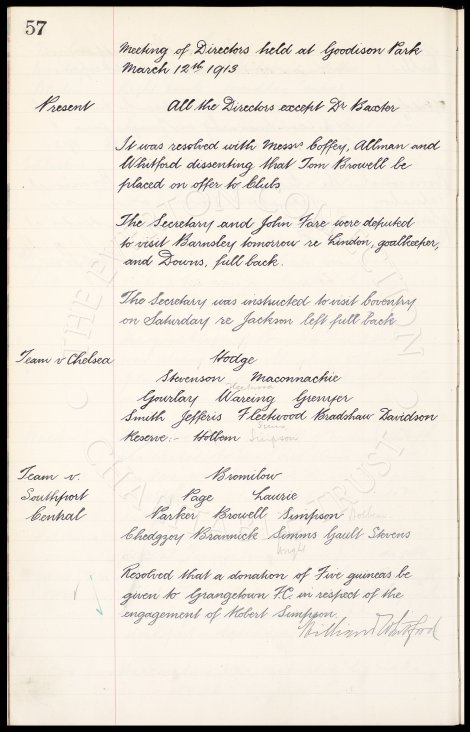 57
Meeting of Directors held at Goodison Park
March 12th 1913
Present All the Directors except Dr Baxter
It was resolved with Messrs Coffey, Allman and
Whitford dissenting that Tom Browell be
placed on offer to Clubs
The Secretary and John Fare were deputed
to visit Barnsley tomorrow re Lindon, goalkeeper,
and Downs, full back.
The Secretary was instructed to visit Coventry
on Saturday re Jackson left full back
Team v Chelsea Hodge
Stevenson Maconnachie
Gourlay Wareing Grenyer
Smith Jefferis Fleetwood Bradshaw Davidson
Simms
Reserve:- Holbem Simpson
Team v. Bromilow
Southport Page Laurie
Central Parker Browell Simpson Holbem
Chedgzoy Brannick Simms Gault Stevens
Wright
Resolved that a donation of Five guineas be
given to Grangetown F.C. in respect of the
engagement of Robert Simpson.
William Whitford
THE EVERTON COLLECTION
CHARITABLE TRUST